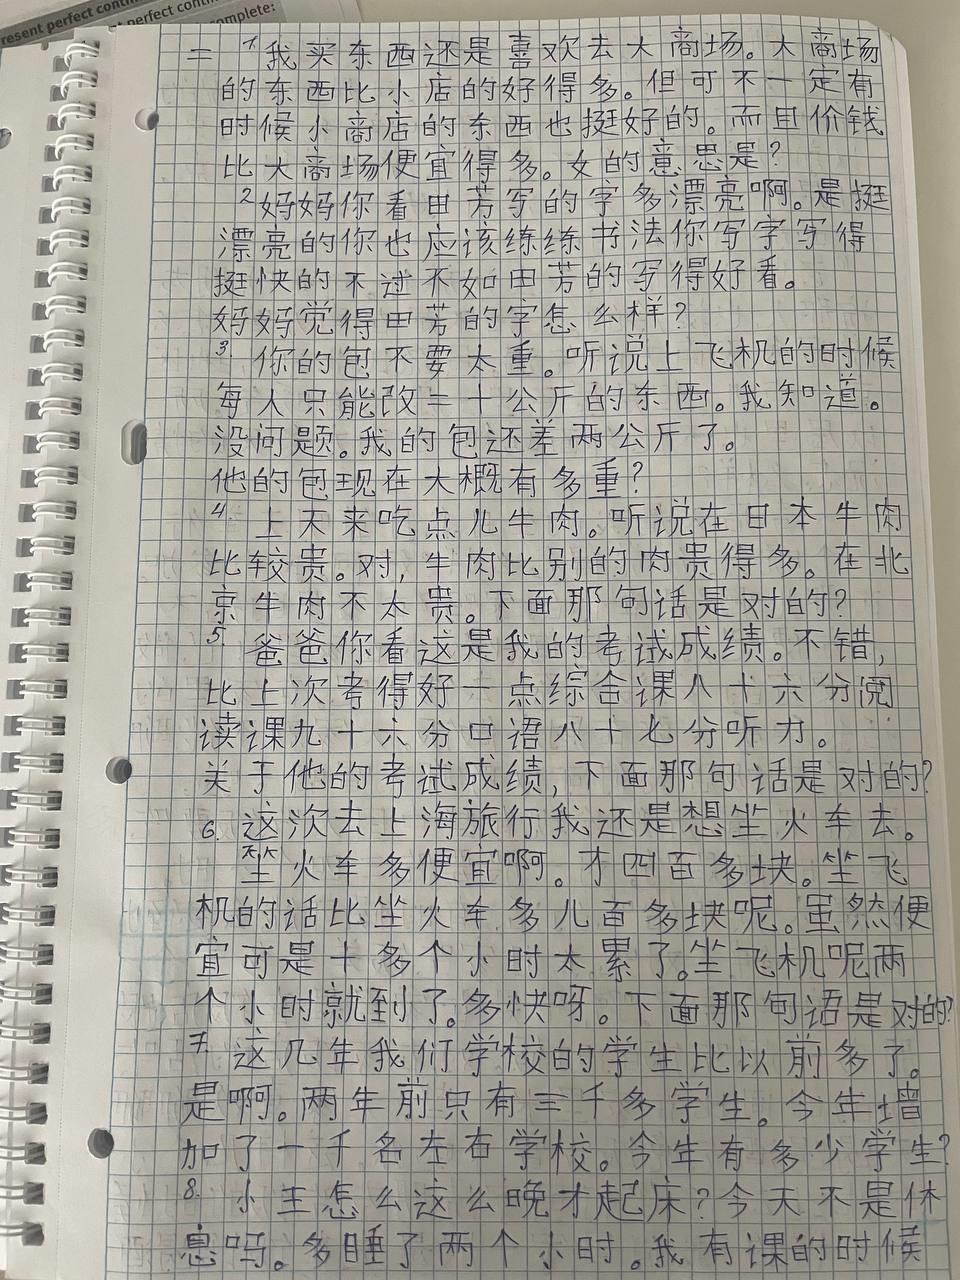 resent perfect contin
t perfect contin
complete:
二 1. 我买东西还是喜欢去大商场。大商场
的东西比小店的好得多。但可不一定有
时候小商店的东西也挺好的。而且价钱
比大商场便宜得多。女的意思是？
2 妈妈你看田芳写的字多漂亮啊。是挺
漂亮的你也应该练练书法你写字写得
挺快的不过不如田芳的写得好看。
妈妈觉得田芳的字怎么样？
3. 你的包不要太重。听说上飞机的时候
每人只能改二十公斤的东西。我知道。
没问题。我的包还差两公斤了。
他的包现在大概有多重？
4. 上天来吃点儿牛肉。听说在日本牛肉
比较贵。对，牛肉比别的肉贵得多。在北
京牛肉不太贵。下面那句话是对的？
5. 爸爸你看这是我的考试成绩。不错，
比上次考得好一点综合课八十六分阅
读课九十六分口语八十七分听力。
关于他的考试成绩，下面那句话是对的？
6. 这次去上海旅行我还是想坐火车去。
坐火车多便宜啊。才四百多块。坐飞
机的话比坐火车多儿百多块呢。虽然便
宜可是十多个小时太累了。坐飞机呢两
个小时就到了。多快呀。下面那句话是对的？
7. 这几年我们学校的学生比以前多了。
是啊。两年前只有三千多学生。今年增
加了一千名左右学校。今年有多少学生？
8. 小王怎么这么晚才起床？今天不是休
息吗。多睡了两个小时。我有课的时候